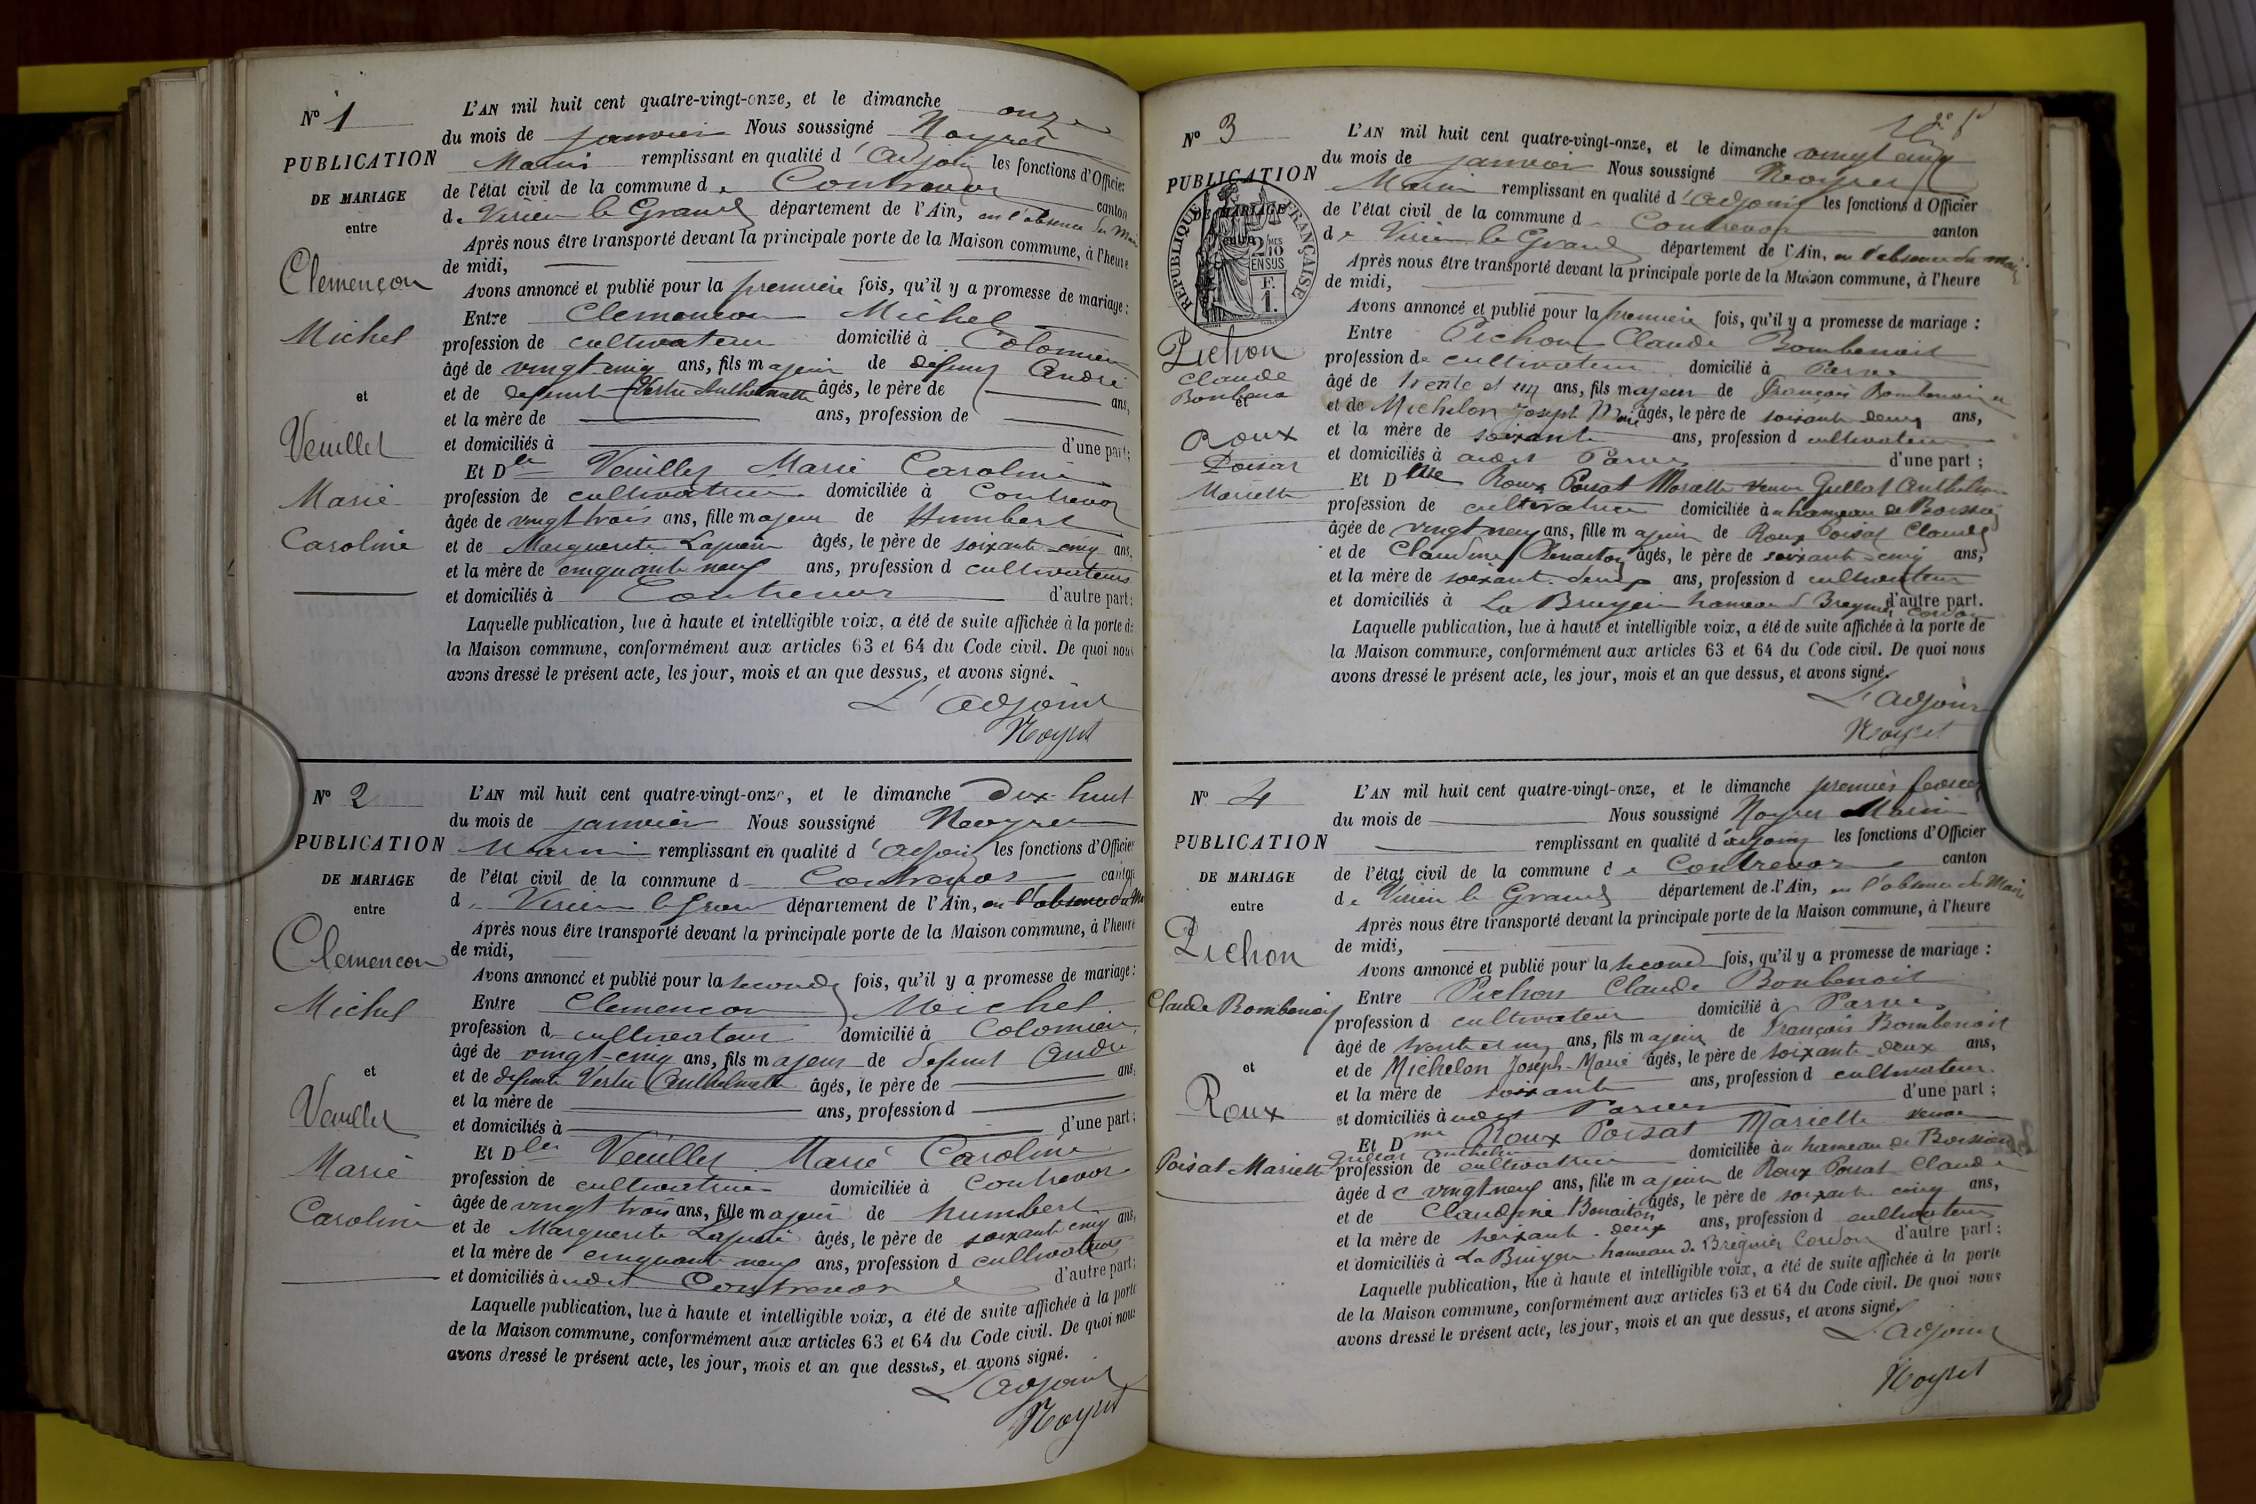 Nº 1
PUBLICATION
DE MARIAGE
entre
Clemençon
Michel
et
Veuillet
Marie
Caroline
L'AN mil huit cent quatre-vingt-onze, et le dimanche onze
du mois de janvier Nous soussigné Noyret
Marin remplissant en qualité d'adjoint les fonctions d'Officier
de l'état civil de la commune de Contrevoz canton
de Virieu le Grand département de l'Ain, en l'absence du Maire
Après nous être transporté devant la principale porte de la Maison commune, à l'heure
de midi,
Avons annoncé et publié pour la première fois, qu'il y a promesse de mariage :
Entre Clemencon Michel
profession de cultivateur domicilié à Colomieu
âgé de vingt-cinq ans, fils majeur de défunt André
et de defunte Vertu Anthelmette âgés, le père de ans,
et la mère de ans, profession de
et domiciliés à d'une part;
Et Dlle Veuillet Marie Caroline
profession de cultivatrice domiciliée à Contrevoz
âgée de vingt trois ans, fille majeur de Humbert
et de Marguerite âgés, le père de soixante-cinq ans,
et la mère de cinquante neuf ans, profession d cultivateurs
et domiciliés à Contrevoz d'autre part;
Laquelle publication, lue à haute et intelligible voix, a été de suite affichée à la porte de
la Maison commune, conformément aux articles 63 et 64 du Code civil. De quoi nous
avons dressé le présent acte, les jour, mois et an que dessus, et avons signé.
L'adjoint
Noyret
Nº 2
PUBLICATION
DE MARIAGE
entre
Clemencon
Michel
et
Veuillet
Marie
Caroline
L'AN mil huit cent quatre-vingt-onze, et le dimanche dix-huit
du mois de janvier Nous soussigné Noyret
Marin remplissant en qualité d'adjoint les fonctions d'Officier
de l'état civil de la commune d Contrevoz canton
d Virieu le Grand département de l'Ain, en l'absence du Maire
Après nous être transporté devant la principale porte de la Maison commune, à l'heure
de midi,
Avons annoncé et publié pour la seconde fois, qu'il y a promesse de mariage :
Entre Clemencon Michel
profession d cultivateur domicilié à Colomieu
âgé de vingt-cinq ans, fils majeur de defunt André
et de defunte Vertu Anthelmette âgés, le père de ans,
et la mère de ans, profession d
et domiciliés à d'une part;
Et Dlle Veuillet Marie Caroline
profession de cultivatrice domiciliée à Contrevoz
âgée de vingt trois ans, fille majeur de humbert
et de Marguerite âgés, le père de soixante cinq ans,
et la mère de cinquante neuf ans, profession d cultivateurs
et domiciliés à udit Contrevoz d'autre part;
Laquelle publication, lue à haute et intelligible voix, a été de suite affichée à la porte
de la Maison commune, conformément aux articles 63 et 64 du Code civil. De quoi nous
avons dressé le présent acte, les jour, mois et an que dessus, et avons signé.
L'adjoint
Noyret
Nº 3
PUBLICATION
DE MARIAGE
entre
RÉPUBLIQUE FRANÇAISE
2/10 MES
EN SUS
F.
1.
Pichon
Claude
et
Roux
Poisat
Mariette
L'AN mil huit cent quatre-vingt-onze, et le dimanche vingt cinq
du mois de janvier Nous soussigné Noyret
Marin remplissant en qualité d'adjoint les fonctions d'Officier
de l'état civil de la commune d Contrevoz canton
de Virieu le Grand département de l'Ain, en l'absence du maire
Après nous être transporté devant la principale porte de la Maison commune, à l'heure
de midi,
Avons annoncé et publié pour la première fois, qu'il y a promesse de mariage :
Entre Pichon Claude Bombenoit
profession de cultivateur domicilié à Parves
âgé de trente et un ans, fils majeur de François Bombenoit
et de Michelon Joseph Marie âgés, le père de soixante deux ans,
et la mère de soixante ans, profession d cultivateur
et domiciliés à audit Parves d'une part ;
Et D Roux Poisat Mariette veuve Guillot Anthelme
profession de cultivatrice domiciliée à u hameau de
âgée de vingt neuf ans, fille majeur de Roux Poisat Claude
et de Claudine âgés, le père de soixante-cinq ans,
et la mère de soixante-deux ans, profession d cultivateur
et domiciliés à La Bruyère hameau d Bregnier Cordon d'autre part.
Laquelle publication, lue à haute et intelligible voix, a été de suite affichée à la porte de
la Maison commune, conformément aux articles 63 et 64 du Code civil. De quoi nous
avons dressé le présent acte, les jour, mois et an que dessus, et avons signé.
L'adjoint
Noyret
Nº 4
PUBLICATION
DE MARIAGE
entre
Pichon
Claude Bombenoit
et
Roux
Poisat Mariette
L'AN mil huit cent quatre-vingt-onze, et le dimanche premier février
du mois de Nous soussigné Noyret Marin
remplissant en qualité d'adjoint les fonctions d'Officier
de l'état civil de la commune de Contrevoz canton
de Virieu le Grand département de l'Ain, en l'absence du Maire
Après nous être transporté devant la principale porte de la Maison commune, à l'heure
de midi,
Avons annoncé et publié pour la seconde fois, qu'il y a promesse de mariage :
Entre Pichon Claude Bonbenoit
profession d cultivateur domicilié à Parves
âgé de trente et un ans, fils majeur de François Bombenoit
et de Michelon Joseph-Marie âgés, le père de soixante-deux ans,
et la mère de soixante ans, profession d cultivateur
et domiciliés à udit Parves d'une part ;
Et Dme Roux Poisat Mariette veuve
Guillot Anthelme
profession de cultivatrice domiciliée à u hameau de
âgée de vingt neuf ans, fille majeur de Roux Poisat Claude
et de Claudine âgés, le père de soixante cinq ans,
et la mère de soixante-deux ans, profession d cultivateurs
et domiciliés à La Bruyère hameau de Brégnier Cordon d'autre part ;
Laquelle publication, lue à haute et intelligible voix, a été de suite affichée à la porte
de la Maison commune, conformément aux articles 63 et 64 du Code civil. De quoi nous
avons dressé le présent acte, les jour, mois et an que dessus, et avons signé.
L'adjoint
Noyret